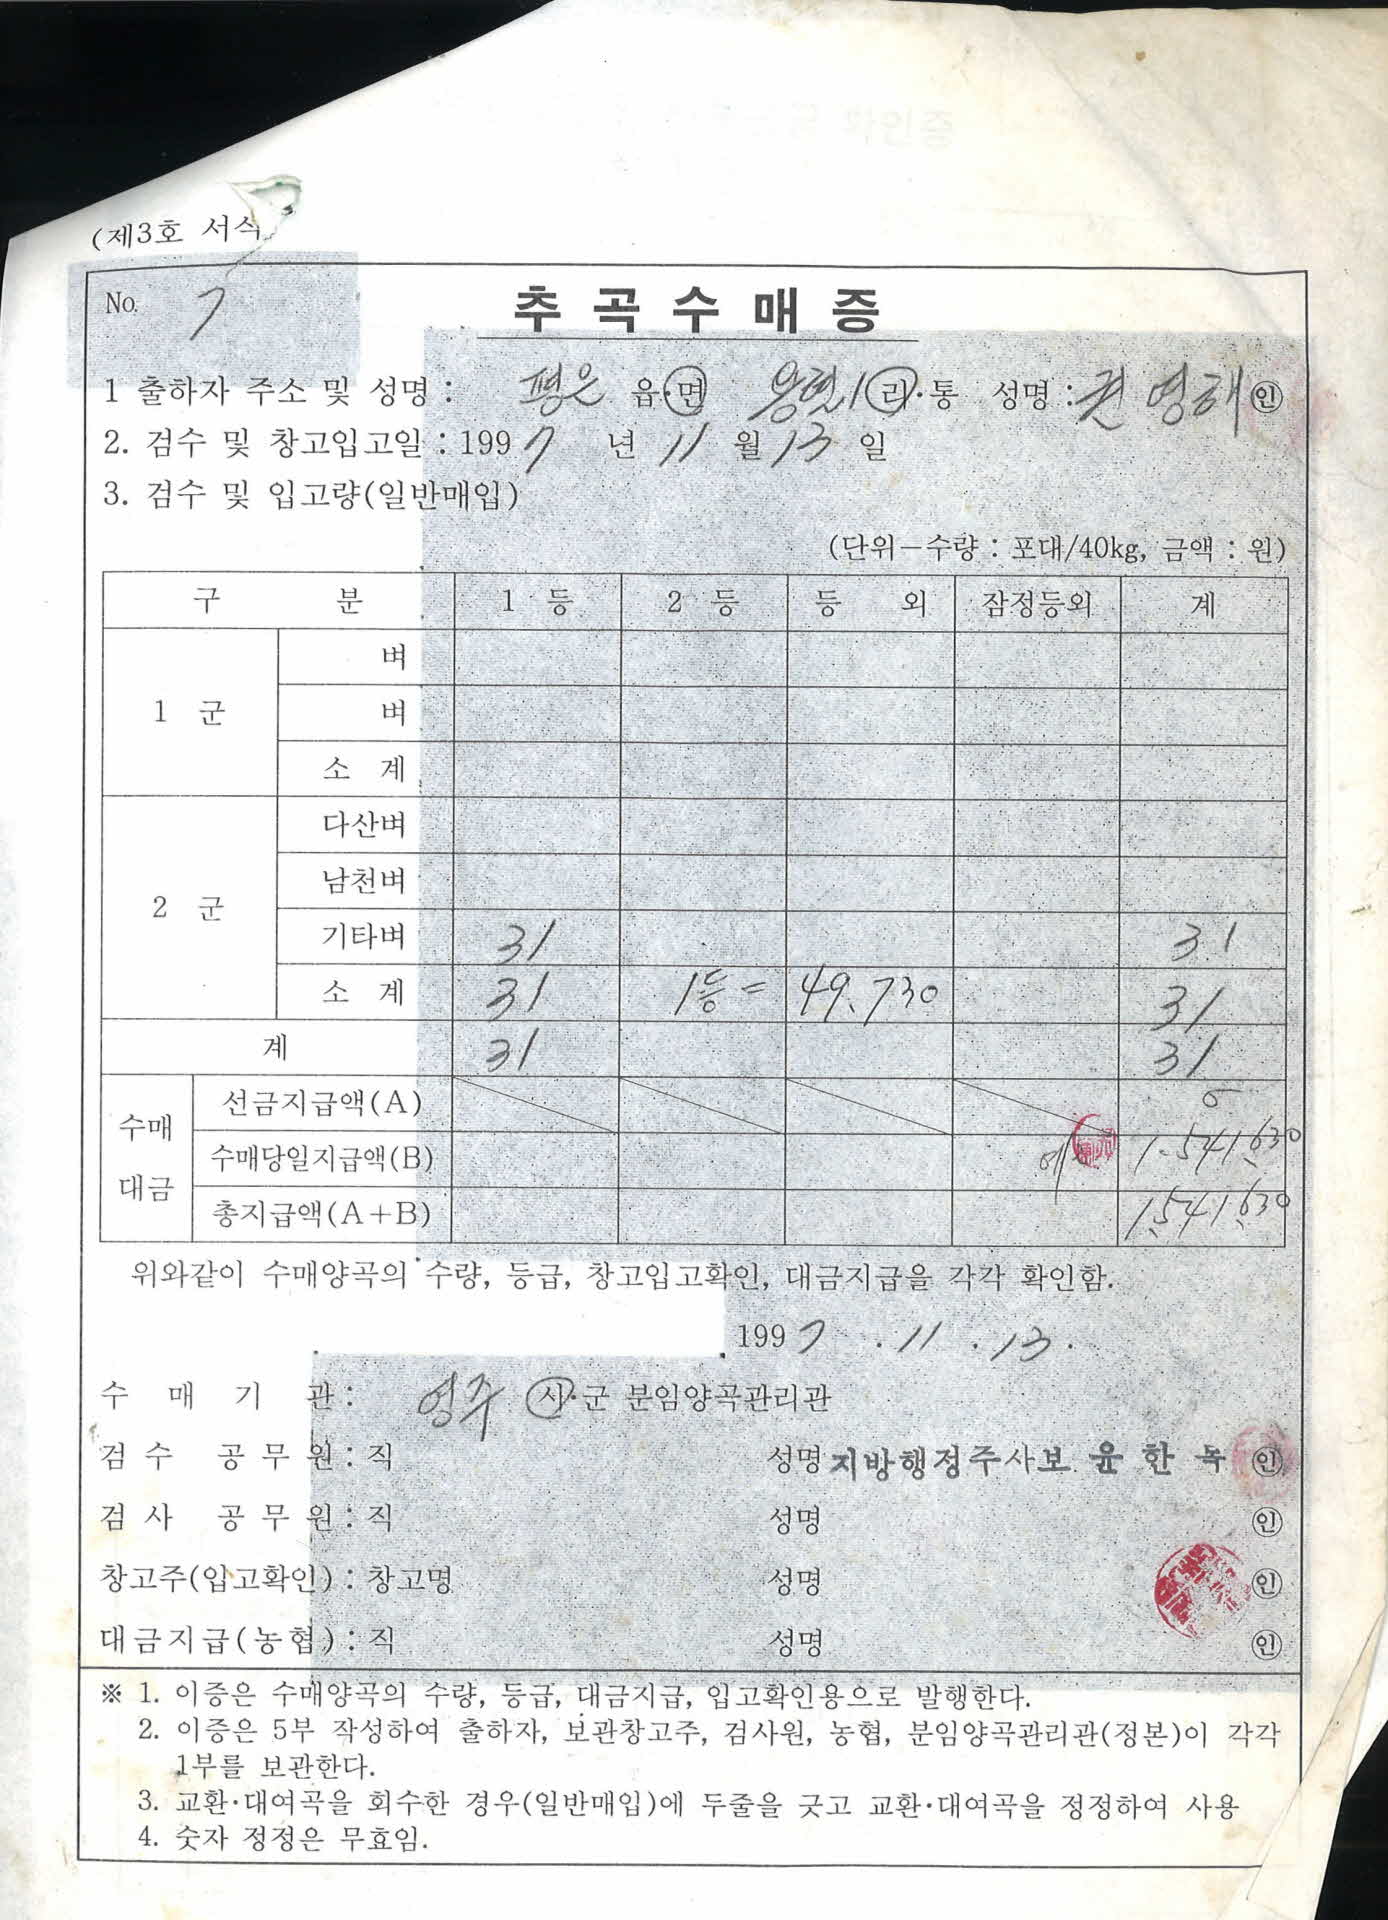 (제3호 서식
No. 7
추곡수매증
1 출하자 주소 및 성명 : 평은 읍·면 용혈1 리·통 성명 : 권영해 인
2. 검수 및 창고입고일 : 1997 년 11 월 13 일
3. 검수 및 입고량(일반매입)
(단위-수량 : 포대/40kg, 금액 : 원)
구 분 1 등 2 등 등 외 잠정등외 계
1 군 벼
벼
소 계
2 군 다산벼
남천벼
기타벼 31 31
소 계 31 1등= 49.730 31
계 31 31
수매 대금 선금지급액(A) 0
수매당일지급액(B) 1.541.630
총지급액(A+B) 1.541.630
위와같이 수매양곡의 수량, 등급, 창고입고확인, 대금지급을 각각 확인함.
1997 . 11 . 13 .
수 매 기 관 : 영주 시·군 분임양곡관리관
검 수 공 무 원 : 직 성명 지방행정주사보 윤 한 인
검 사 공 무 원 : 직 성명 인
창고주(입고확인) : 창고명 성명 인
대금지급(농협) : 직 성명 인
※ 1. 이증은 수매양곡의 수량, 등급, 대금지급, 입고확인용으로 발행한다.
2. 이증은 5부 작성하여 출하자, 보관창고주, 검사원, 농협, 분임양곡관리관(정본)이 각각
1부를 보관한다.
3. 교환·대여곡을 회수한 경우(일반매입)에 두줄을 긋고 교환·대여곡을 정정하여 사용
4. 숫자 정정은 무효임.